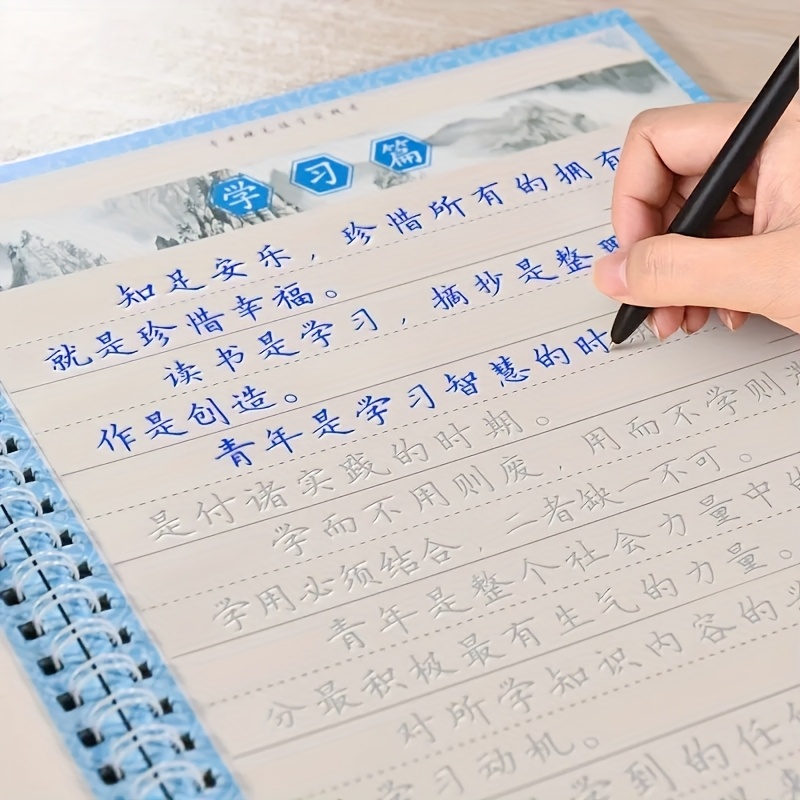 学习篇
知足安乐，珍惜所有的拥有
就是珍惜幸福。
读书是学习，摘抄是整理
作是创造。
青年是学习智慧的时
是付诸实践的时期。
学而不用则废，用而不学则
学用必须结合，二者缺一不可。
青年是整个社会力量中的
分最积极最有生气的力量。
对所学知识内容的
学习动机。
学到的任